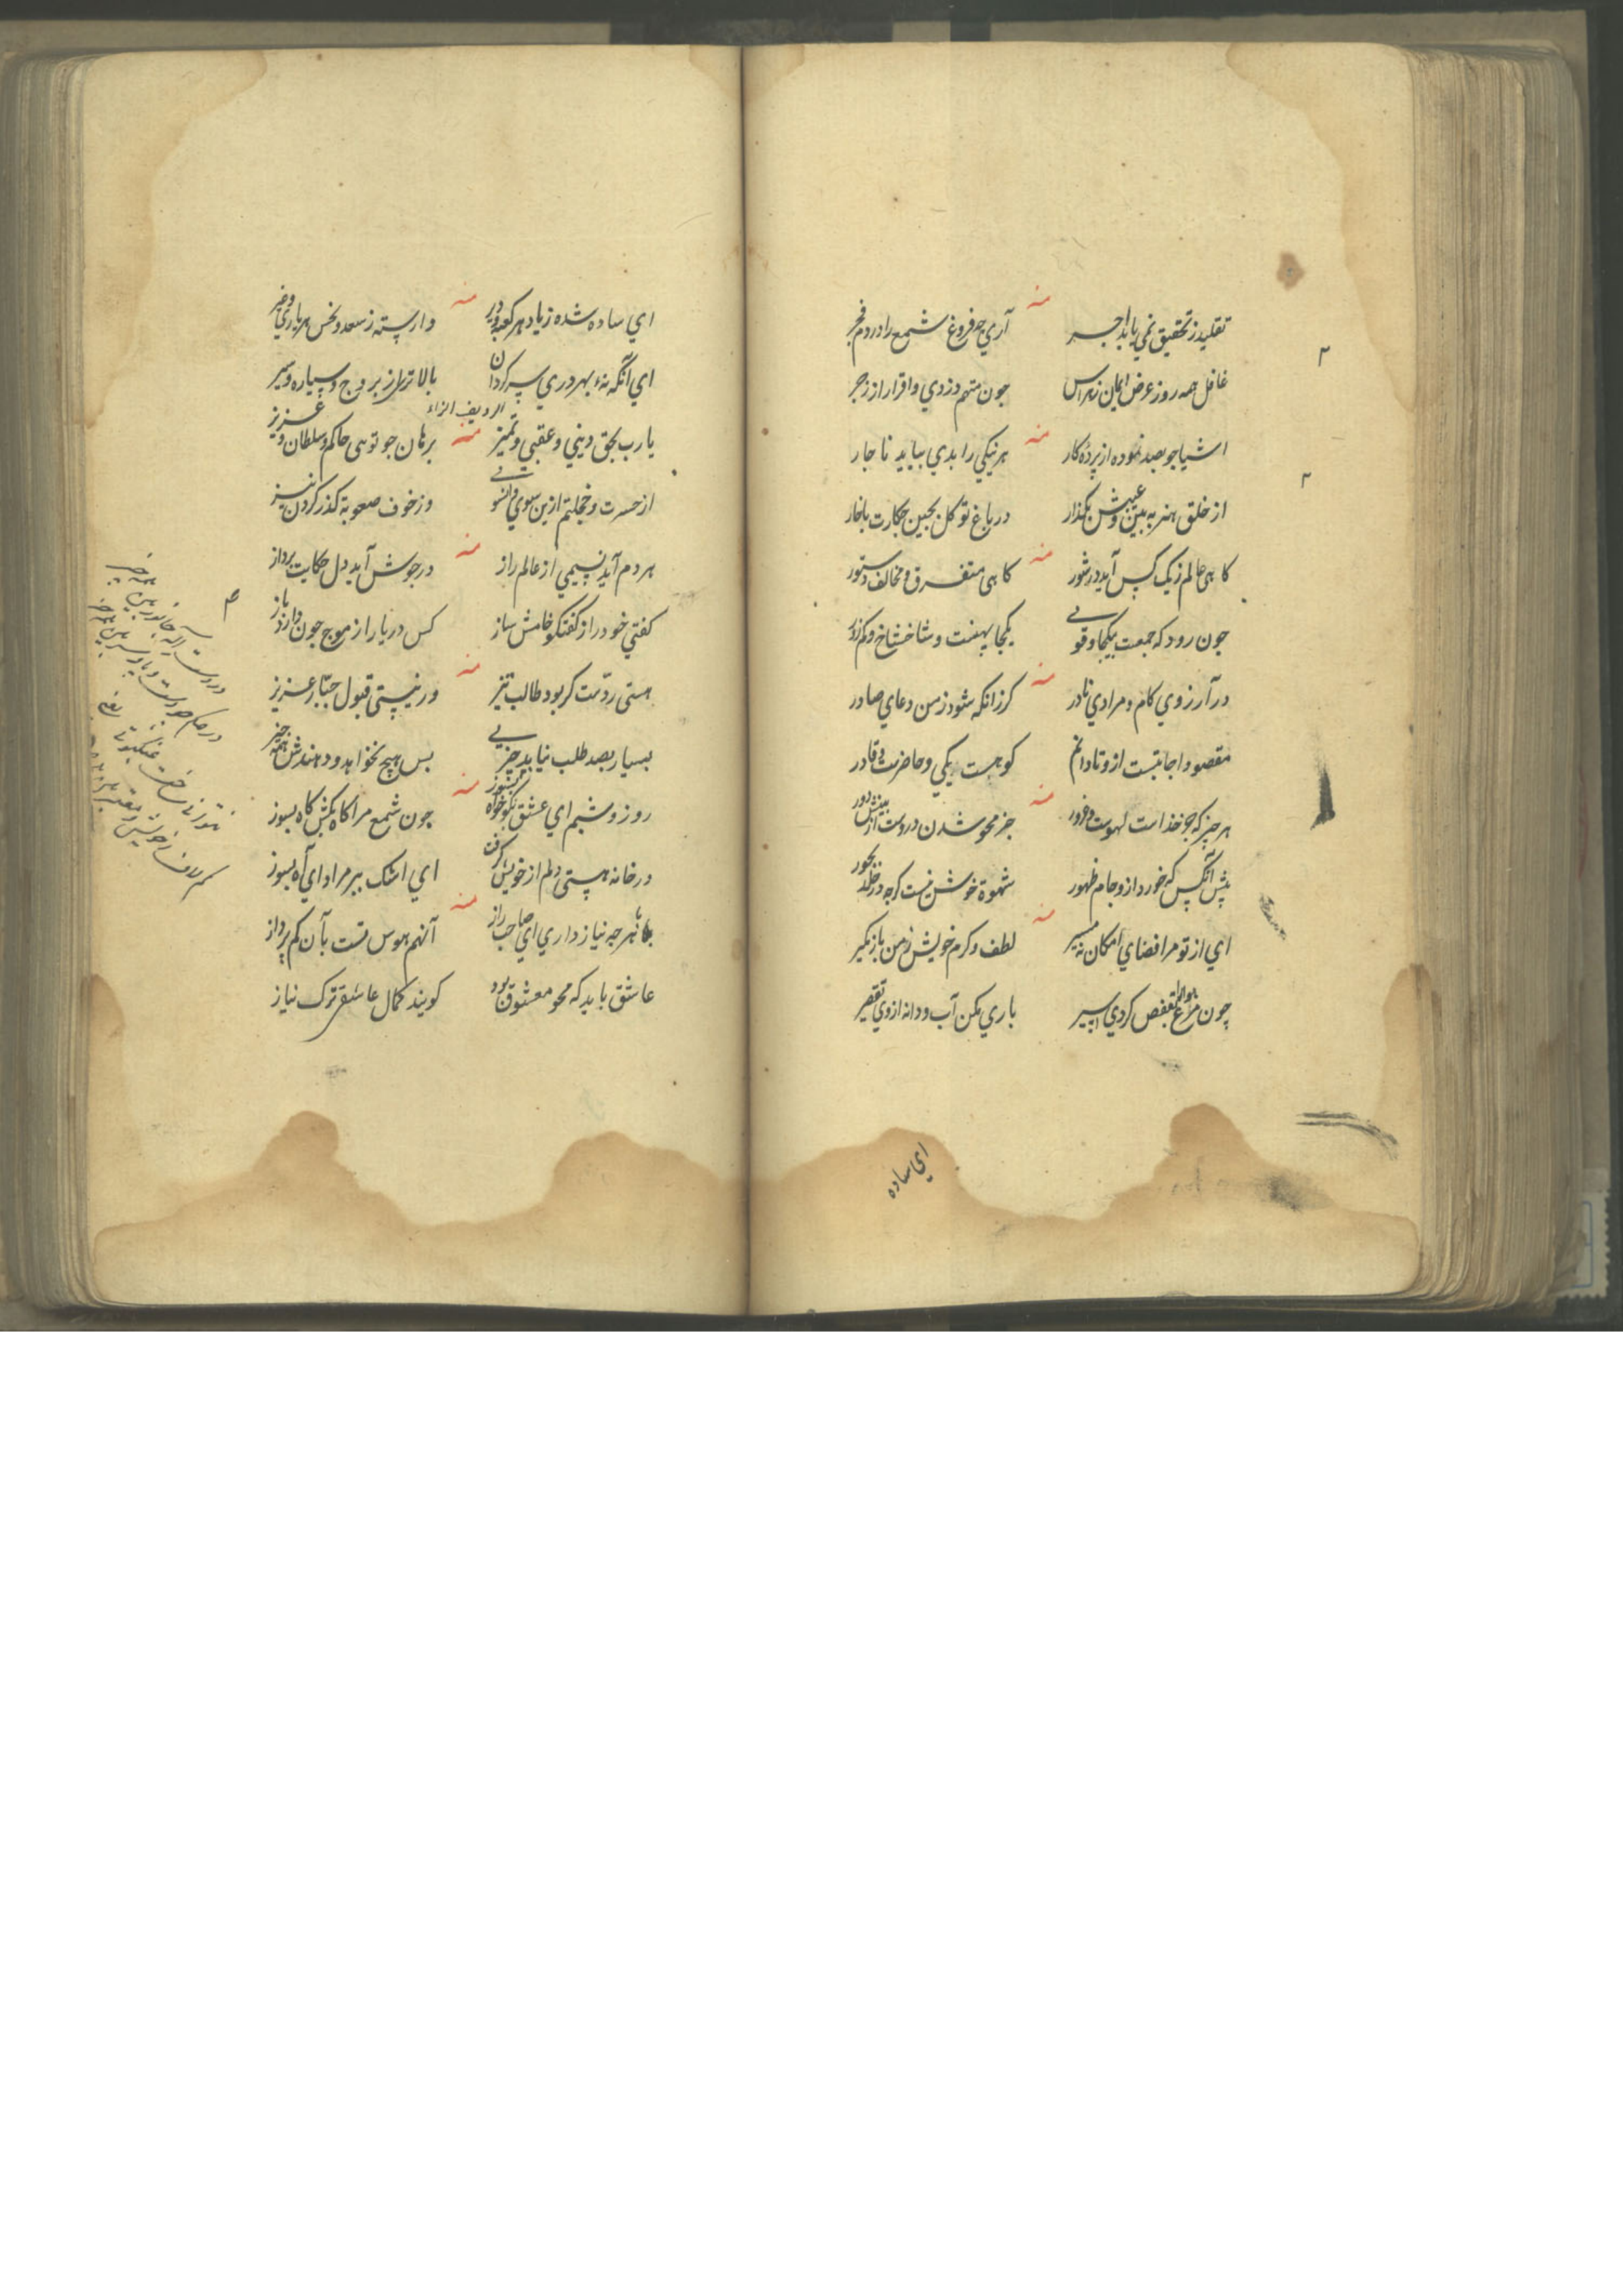 منه
تقلید ز تحقیق نمی یابد اجر آري چه فروغ شمع را در دم فجر
غافل همه روز عرض ایمان ز هراس چون متهم دزدي و اقرار از زجر
منه
اشیا چو بصد نموده از پردهٔ کار هر نیکي را بدي بباید ناچار
از خلق هنر به بین و عیبش بگذار در باغ تو گل بچین چکارت با خار
منه
کاهی عالم ز یک کس آید در شور کاهی متفرق و مخالف دستور
چون رود که جمعست بیکجا وقوي یکجا پهنست و شاخشاخ و کم زور
منه
در آرزوي کام و مرادي نادر کر زانکه شود ز من دعاي صادر
مقصود اجابتست ازو تا دانم کو هست یکي و حاضرست و قادر
منه
هر چیز که جز خداست لهوست و غرور جز محو شدن دروست از بینش دور
پیش آنکس که خورد ازو جام طهور شهوة خوش نیست کرچه در خلد بحور
منه
اي از تو مرا فضاي امکان نه مسیر لطف و کرم خویش ز من باز مگیر
چون مرغ هوا بقفص کردي اسیر باري مکن آب و دانه ازوي تقصیر
اي ساده
منه
اي ساده شده ز یاد هر کعبه و دیر وارسته ز سعد و نحس هر یاري و غیر
اي آنکه نهٔ بهر دري سرکردان بالاتري از بروج و سیاره و سیر
الردیف الزاء
منه
یارب بحق دیني و عقبي و تمیز برهان چو توهی حاکم و سلطان و عزیز
از حسرت و خجلتم ازین سوي و آنسوي وز خوف صعوبة کذر کردن نیز
منه
هر دم آید نسیمي از عالم راز در جوش آید دل حکایت پرداز
کفتي خود را ز کفتکو خامش ساز کس دریا را ز موج چون دارد باز
منه
هستی ردّست کر بود طالب تیز ور نیستی قبول جبّار عزیز
بسیار بصد طلب نیابد چیزي بس هیچ نخواهد و دهندش همه چیز
منه
روز و شبم اي عشق نکو خواه بسوز چون شمع مرا کاه بکش کاه بسوز
در خانه هستی دلم از خویش کرفت اي اشک ببر مرا و اي آه بسوز
منه
با هر چه نیاز داري اي صاحب راز آنهم هوس تست بآن کم پرداز
عاشق باید که محو معشوق بود کویند کمال عاشقي ترک نیاز